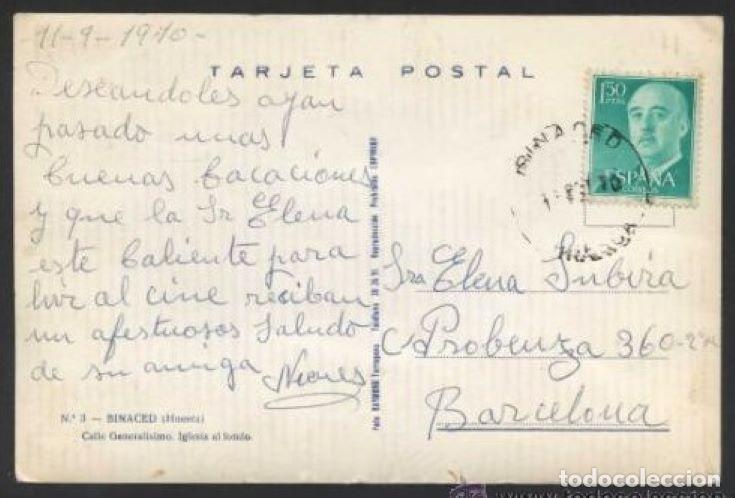 11-9-1970-
TARJETA POSTAL
Deseandoles ayan
pasado unas
buenas bacaciones
y que la Sr Elena
este baliente para
hir al cine reciban
un afestuosos saludo
de su amiga Nieves
N.º 3 — BINACED (Huesca)
Calle Generalísimo. Iglesia al fondo.
Foto RAYMOND Tarragona Teléfono Reproducción Prohibida
1,50
PTAS
ESPAÑA
CORREOS
BINACED
HUESCA
Sra Elena Subira
C Probenza 360-2º
Barcelona
todocoleccion
www.todocoleccion